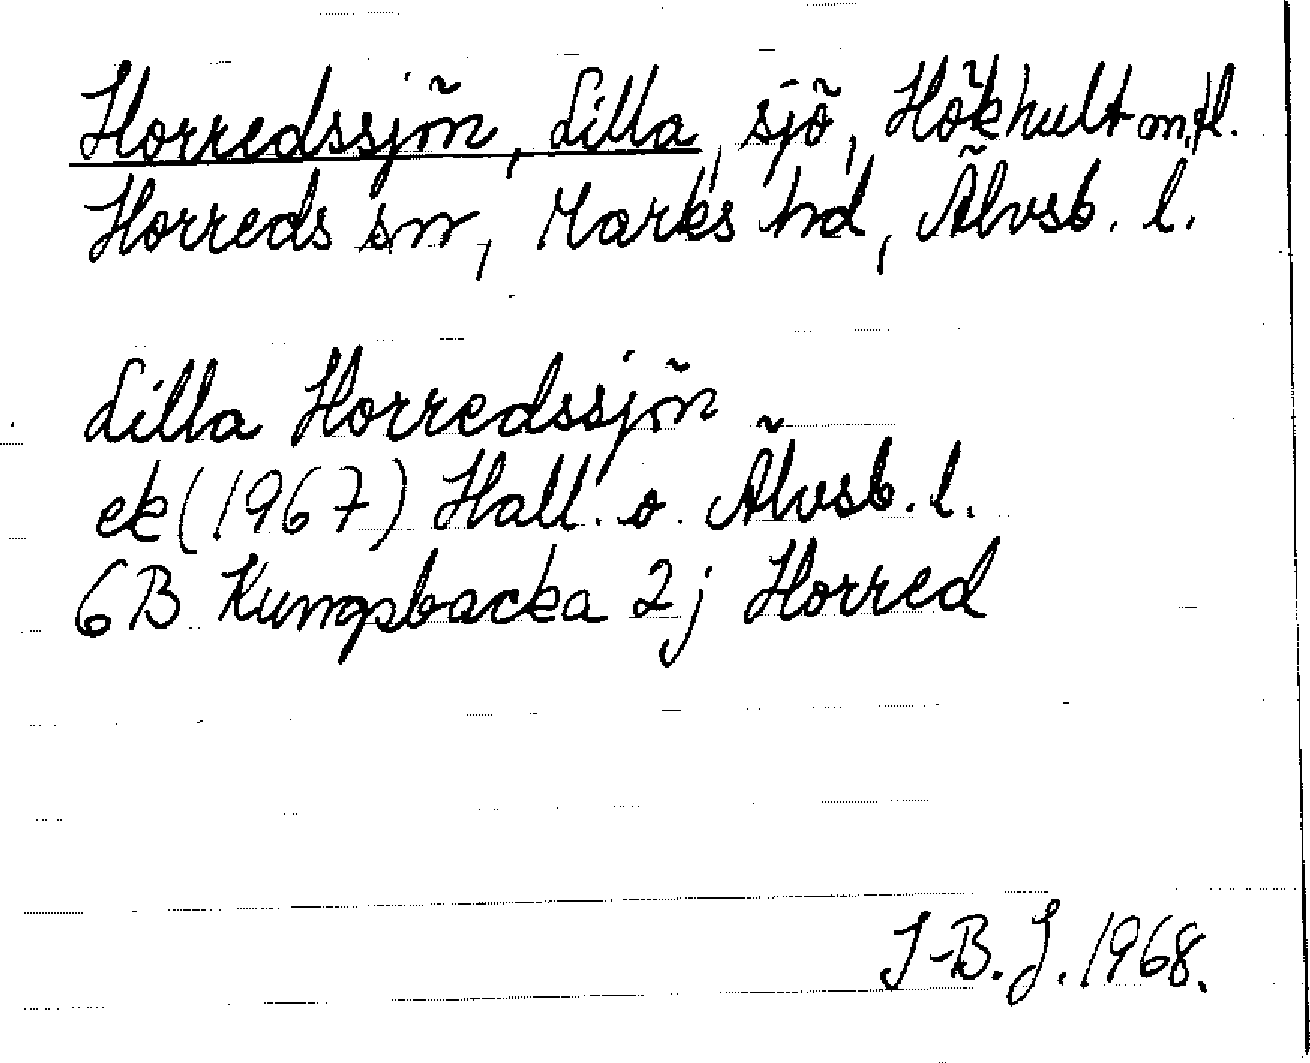 Horredssjön, Lilla, sjö, Hökhult m.fl.
Horreds sn, Marks hd, Älvsb. l.
Lilla Horredssjön
ek (1967) Hall. o. Älvsb. l.
6B Kungsbacka 2j Horred
I-B. J. 1968.